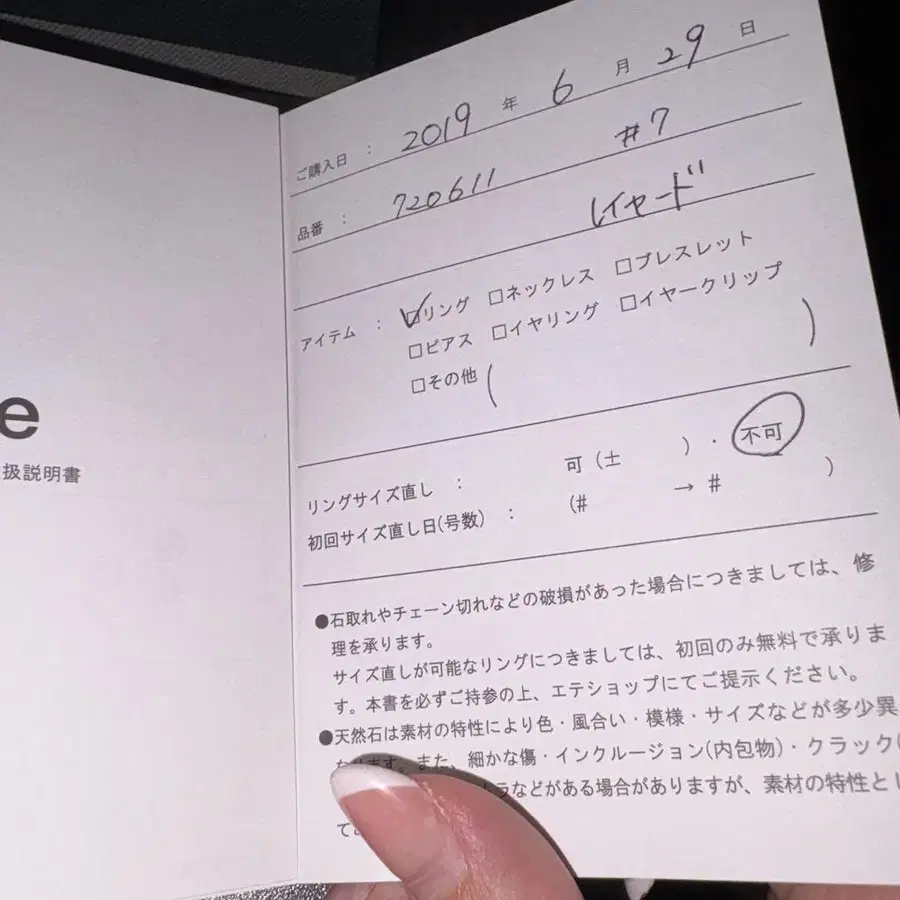 e
扱説明書
ご購入日 : 2019 年 6 月 29 日
品番 : 720611 #7
レイヤード
アイテム : ☑リング □ネックレス □ブレスレット
□ピアス □イヤリング □イヤークリップ
□その他 ( )
リングサイズ直し : 可 (± )・不可
初回サイズ直し日(号数) : (# → # )
●石取れやチェーン切れなどの破損があった場合につきましては、修
理を承ります。
サイズ直しが可能なリングにつきましては、初回のみ無料で承りま
す。本書を必ずご持参の上、エテショップにてご提示ください。
●天然石は素材の特性により色・風合い・模様・サイズなどが多少異
ります。また、細かな傷・インクルージョン(内包物)・クラック(
ラなどがある場合がありますが、素材の特性とし
て